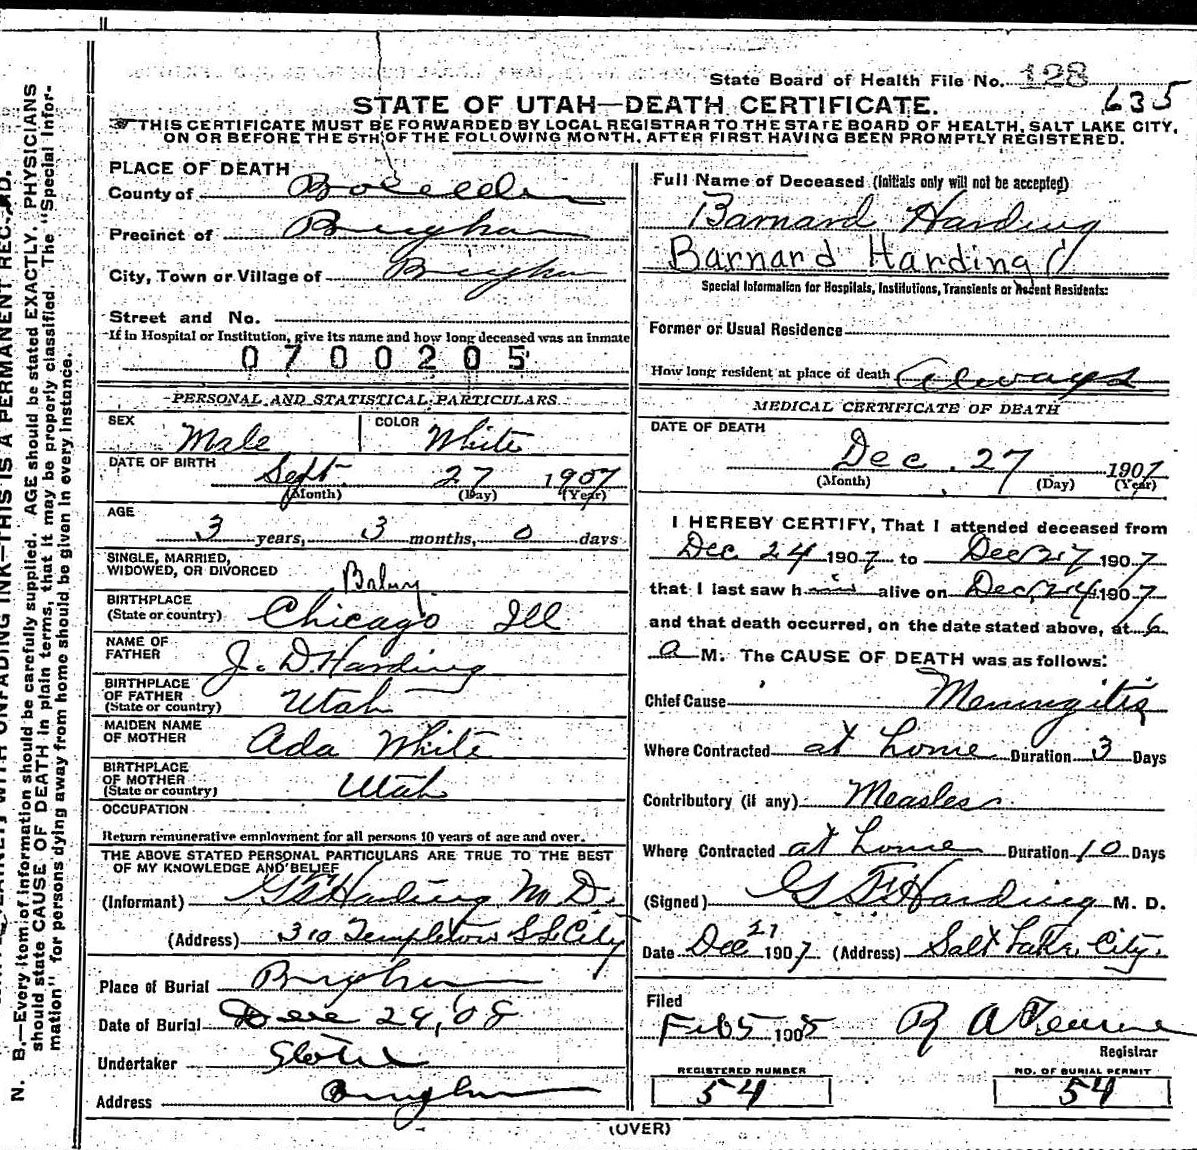 State Board of Health File No. 128
635
STATE OF UTAH—DEATH CERTIFICATE.
THIS CERTIFICATE MUST BE FORWARDED BY LOCAL REGISTRAR TO THE STATE BOARD OF HEALTH, SALT LAKE CITY,
ON OR BEFORE THE 5TH OF THE FOLLOWING MONTH, AFTER FIRST HAVING BEEN PROMPTLY REGISTERED.
PLACE OF DEATH
County of Boxelder
Precinct of Brigham
City, Town or Village of Brigham
Street and No.
If in Hospital or Institution, give its name and how long deceased was an inmate
0700205
PERSONAL AND STATISTICAL PARTICULARS
SEX Male COLOR White
DATE OF BIRTH Sept 27 1907
(Month) (Day) (Year)
AGE
3 years, 3 months, 0 days
SINGLE, MARRIED,
WIDOWED, OR DIVORCED Baby
BIRTHPLACE
(State or country) Chicago Ill
NAME OF
FATHER J. D. Harding
BIRTHPLACE
OF FATHER
(State or country) Utah
MAIDEN NAME
OF MOTHER Ada White
BIRTHPLACE
OF MOTHER
(State or country) Utah
OCCUPATION
Return remunerative employment for all persons 10 years of age and over.
THE ABOVE STATED PERSONAL PARTICULARS ARE TRUE TO THE BEST
OF MY KNOWLEDGE AND BELIEF
(Informant) G F Harding M. D.
(Address) 310 Templeton S L City
Place of Burial Brigham
Date of Burial Dec 29, '08
Undertaker
Address Brigham
Full Name of Deceased (initials only will not be accepted)
Barnard Harding
Barnard Harding
Special Information for Hospitals, Institutions, Transients or Recent Residents:
Former or Usual Residence
How long resident at place of death Always
MEDICAL CERTIFICATE OF DEATH
DATE OF DEATH
Dec. 27 1907
(Month) (Day) (Year)
I HEREBY CERTIFY, That I attended deceased from
Dec 24 1907 to Dec 27 1907
that I last saw him alive on Dec 24 1907
and that death occurred, on the date stated above, at 6
a M. The CAUSE OF DEATH was as follows:
Chief Cause Meningitis
Where Contracted at home Duration 3 Days
Contributory (if any) Measles
Where Contracted at home Duration 10 Days
(Signed) G F Harding M. D.
Date Dec 27 1907 (Address) Salt Lake City.
Filed
Feb 5 1908 R A
Registrar
REGISTERED NUMBER
54
NO. OF BURIAL PERMIT
54
(OVER)
N. B.—Every item of information should be carefully supplied. AGE should be stated EXACTLY. PHYSICIANS
should state CAUSE OF DEATH in plain terms, that it may be properly classified. The "Special Infor-
mation" for persons dying away from home should be given in every instance.
WITH UNFADING INK—THIS IS A PERMANENT RECORD.